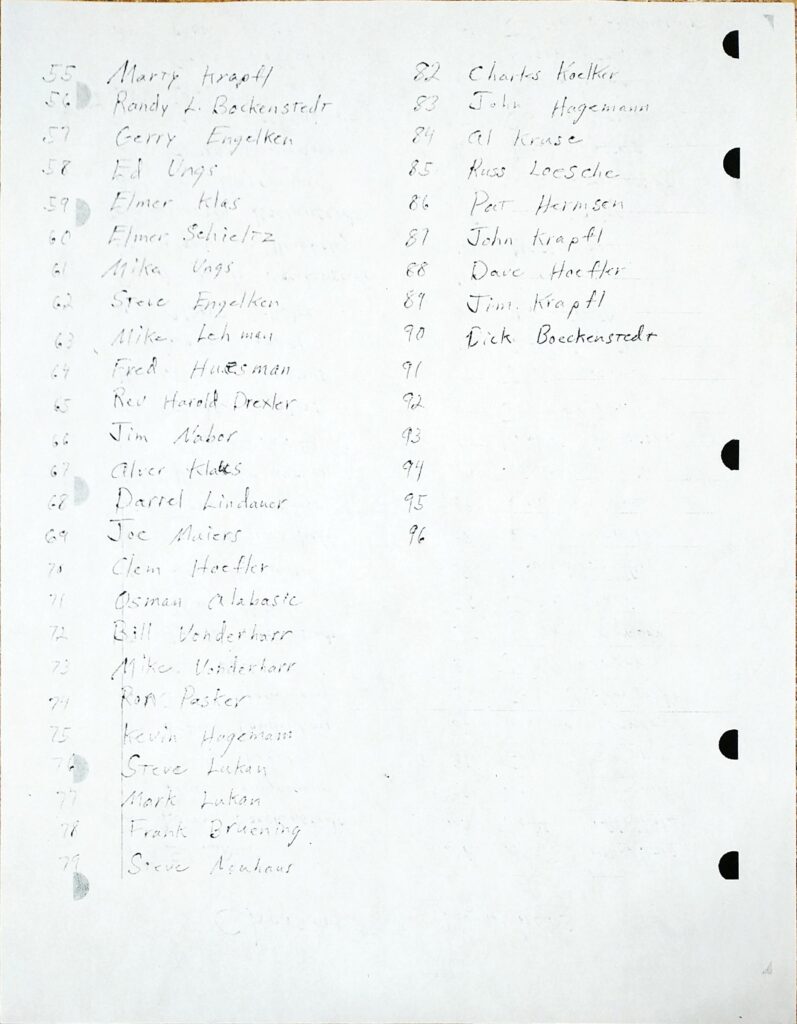 55 Marty Krapfl
56 Randy L. Bockenstedt
57 Gerry Engelken
58 Ed Ungs
59 Elmer Klas
60 Elmer Schieltz
61 Mike Ungs
62 Steve Engelken
63 Mike Lehman
64 Fred Huesman
65 Rev Harold Drexler
66 Jim Nabor
67 Alver Klaus
68 Darrel Lindauer
69 Joe Maiers
70 Clem Hoefler
71 Osman Alabasic
72 Bill Vonderharr
73 Mike Vonderharr
74 Ron Pasker
75 Kevin Hagemann
76 Steve Lukan
77 Mark Lukan
78 Frank Bruening
79 Steve Neuhaus
82 Charles Koelker
83 John Hagemann
84 Al Kruse
85 Russ Loesche
86 Pat Hermsen
87 John Krapfl
88 Dave Hoefler
89 Jim Krapfl
90 Dick Boeckenstedt
91
92
93
94
95
96